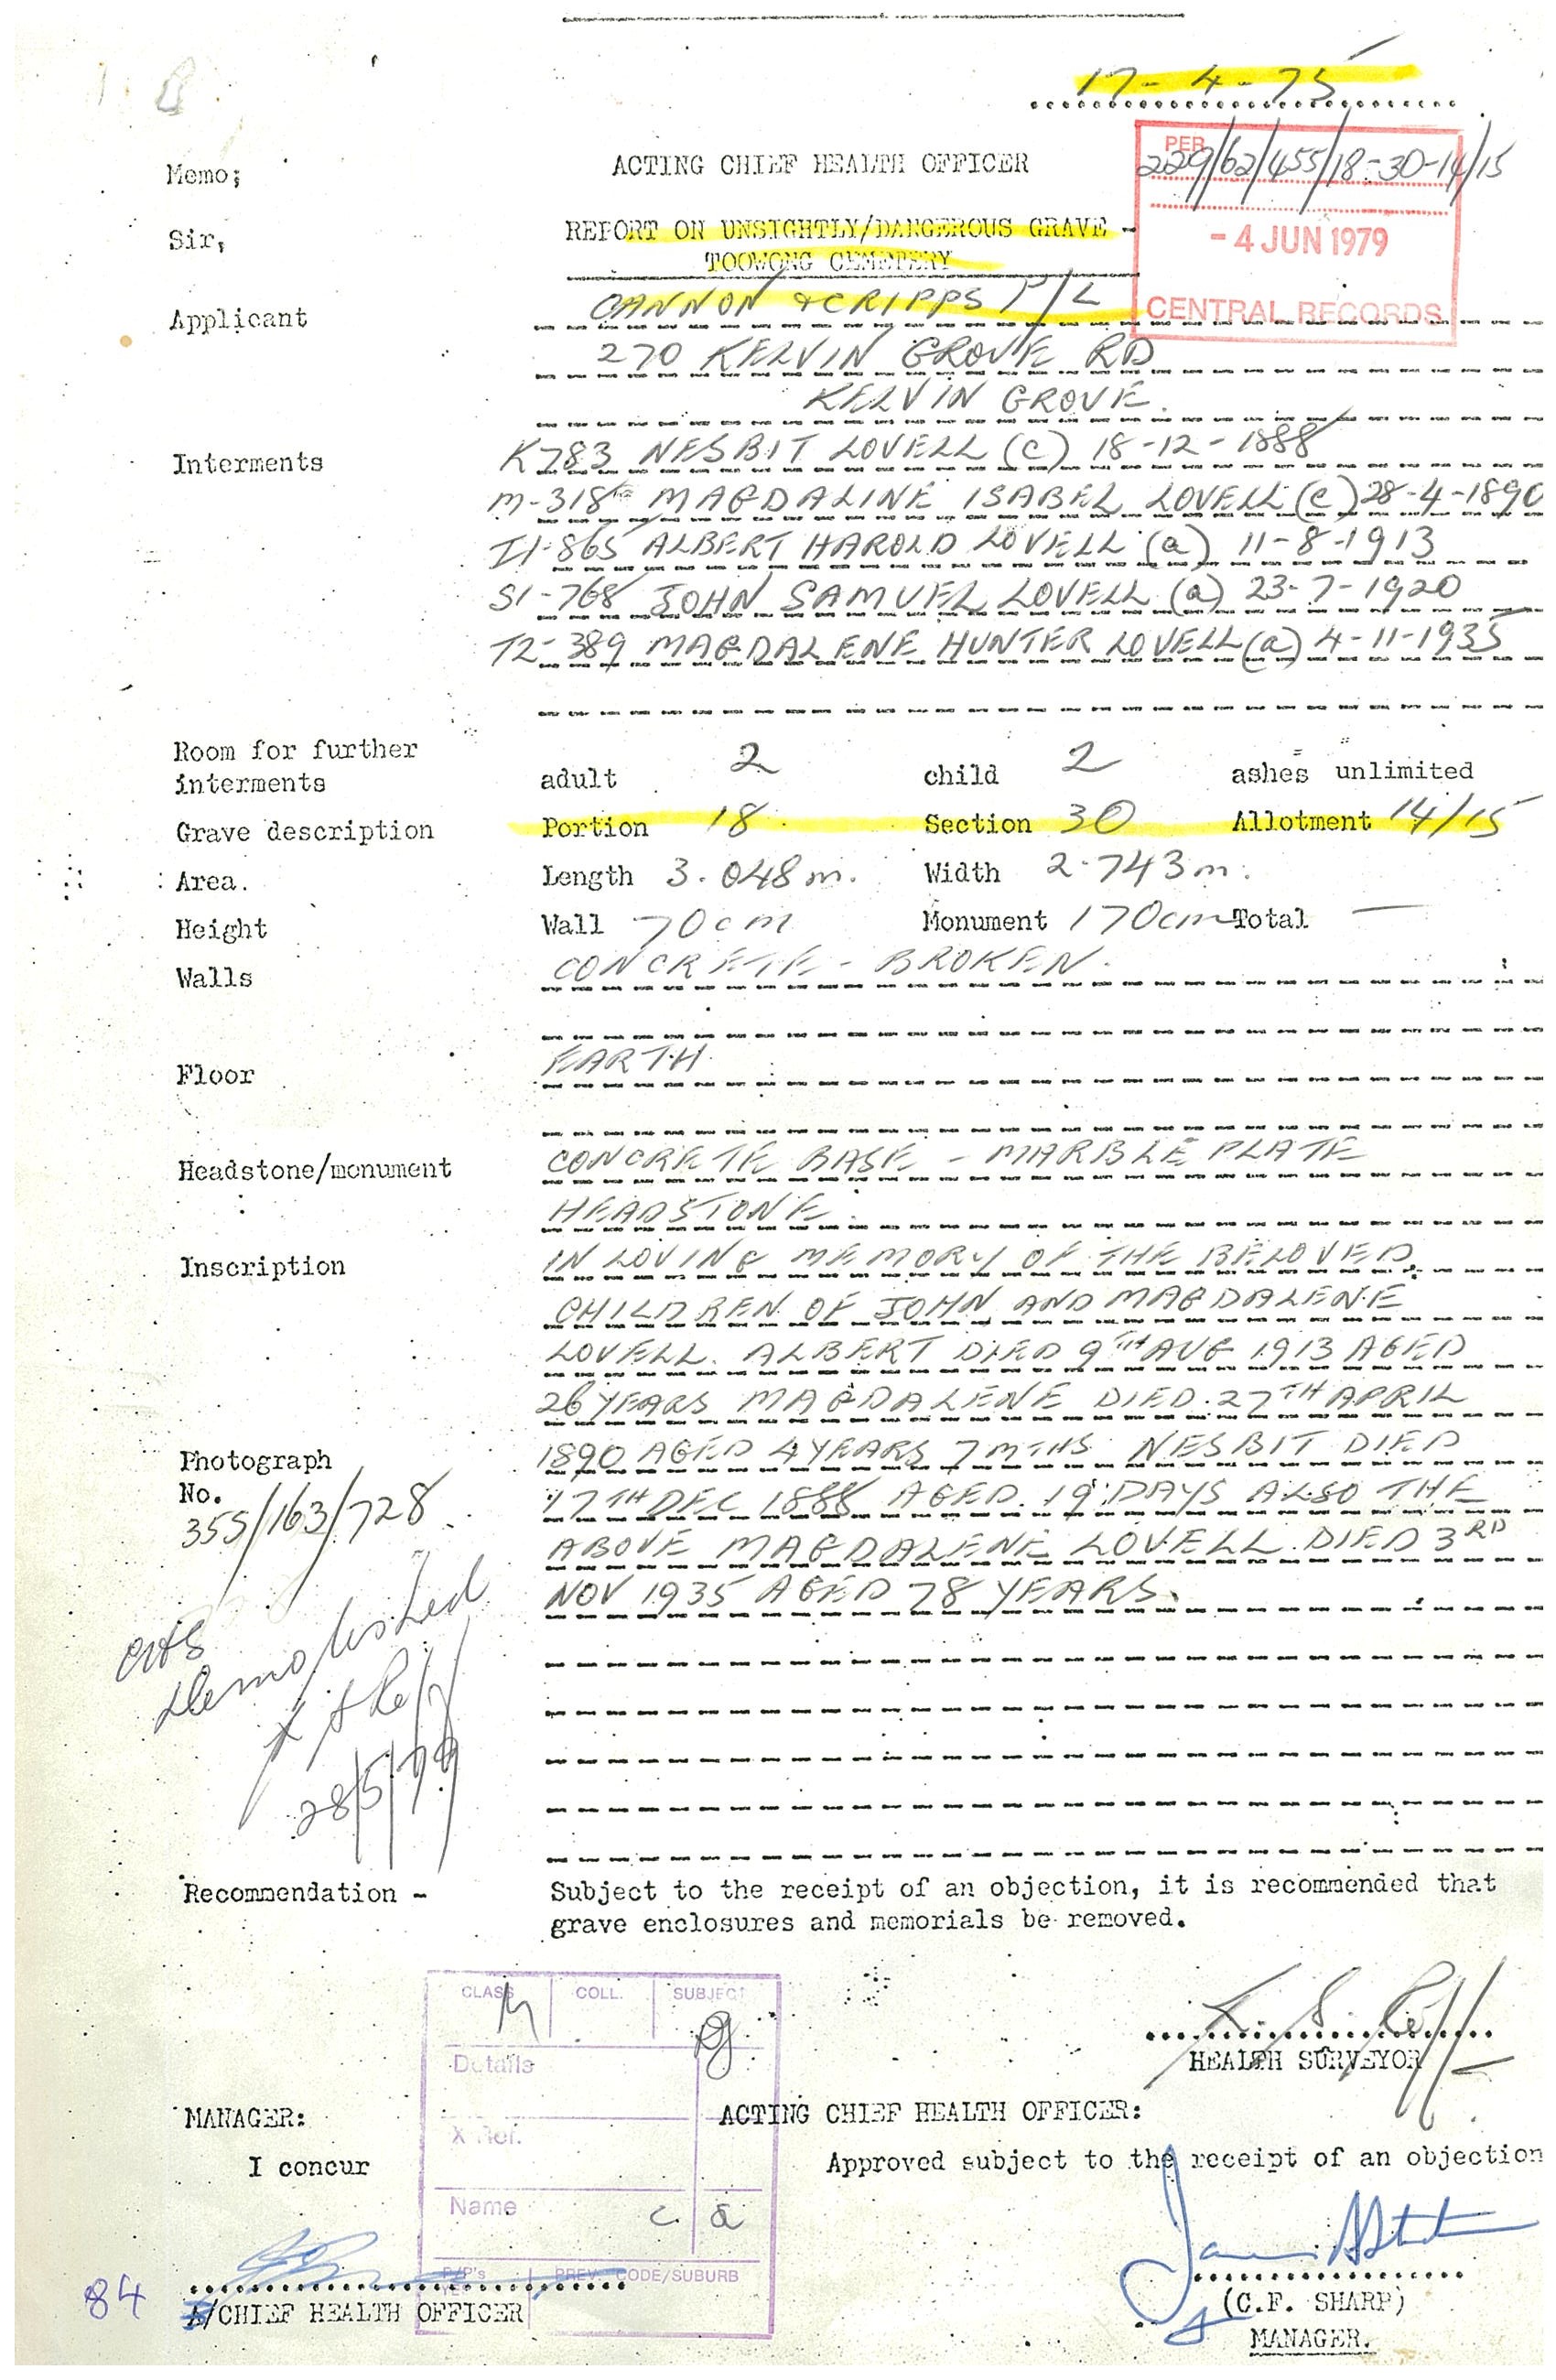 17-4-75
PER
229/62/455/18-30-14/15
- 4 JUN 1979
CENTRAL RECORDS
Memo;
ACTING CHIEF HEALTH OFFICER
Sir,
REPORT ON UNSIGHTLY/DANGEROUS GRAVE -
TOOWONG CEMETERY
Applicant CANNON & CRIPPS P/L
270 KELVIN GROVE RD
KELVIN GROVE.
Interments K783 NESBIT LOVELL (c) 18-12-1888
M-318 MAGDALINE ISABEL LOVELL (c) 28-4-1890
I1-865 ALBERT HAROLD LOVELL (a) 11-8-1913
S1-768 JOHN SAMUEL LOVELL (a) 23-7-1920
T2-389 MAGDALENE HUNTER LOVELL (a) 4-11-1935
Room for further
interments adult 2 child 2 ashes unlimited
Grave description Portion 18 Section 30 Allotment 14/15
Area. Length 3.048m. Width 2.743m.
Height Wall 70cm Monument 170cm Total —
Walls CONCRETE - BROKEN.
Floor EARTH
Headstone/monument CONCRETE BASE - MARBLE PLATE
HEADSTONE.
Inscription IN LOVING MEMORY OF THE BELOVED
CHILDREN OF JOHN AND MAGDALENE
LOVELL. ALBERT DIED 9TH AUG 1913 AGED
26 YEARS MAGDALENE DIED 27TH APRIL
Photograph 1890 AGED 4 YEARS 7 MTHS NESBIT DIED
No. 17TH DEC 1888 AGED 19 DAYS ALSO THE
355/163/728
ABOVE MAGDALENE LOVELL DIED 3RD
NOV 1935 AGED 78 YEARS.
Demolished
28/5/79
Recommendation - Subject to the receipt of an objection, it is recommended that
grave enclosures and memorials be removed.
CLASS COLL. SUBJECT
Details
X Ref.
Name c. a
P/P's PREV. CODE/SUBURB
HEALTH SURVEYOR
MANAGER:
ACTING CHIEF HEALTH OFFICER:
I concur
Approved subject to the receipt of an objection
84
A/CHIEF HEALTH OFFICER
(C.F. SHARP)
MANAGER.